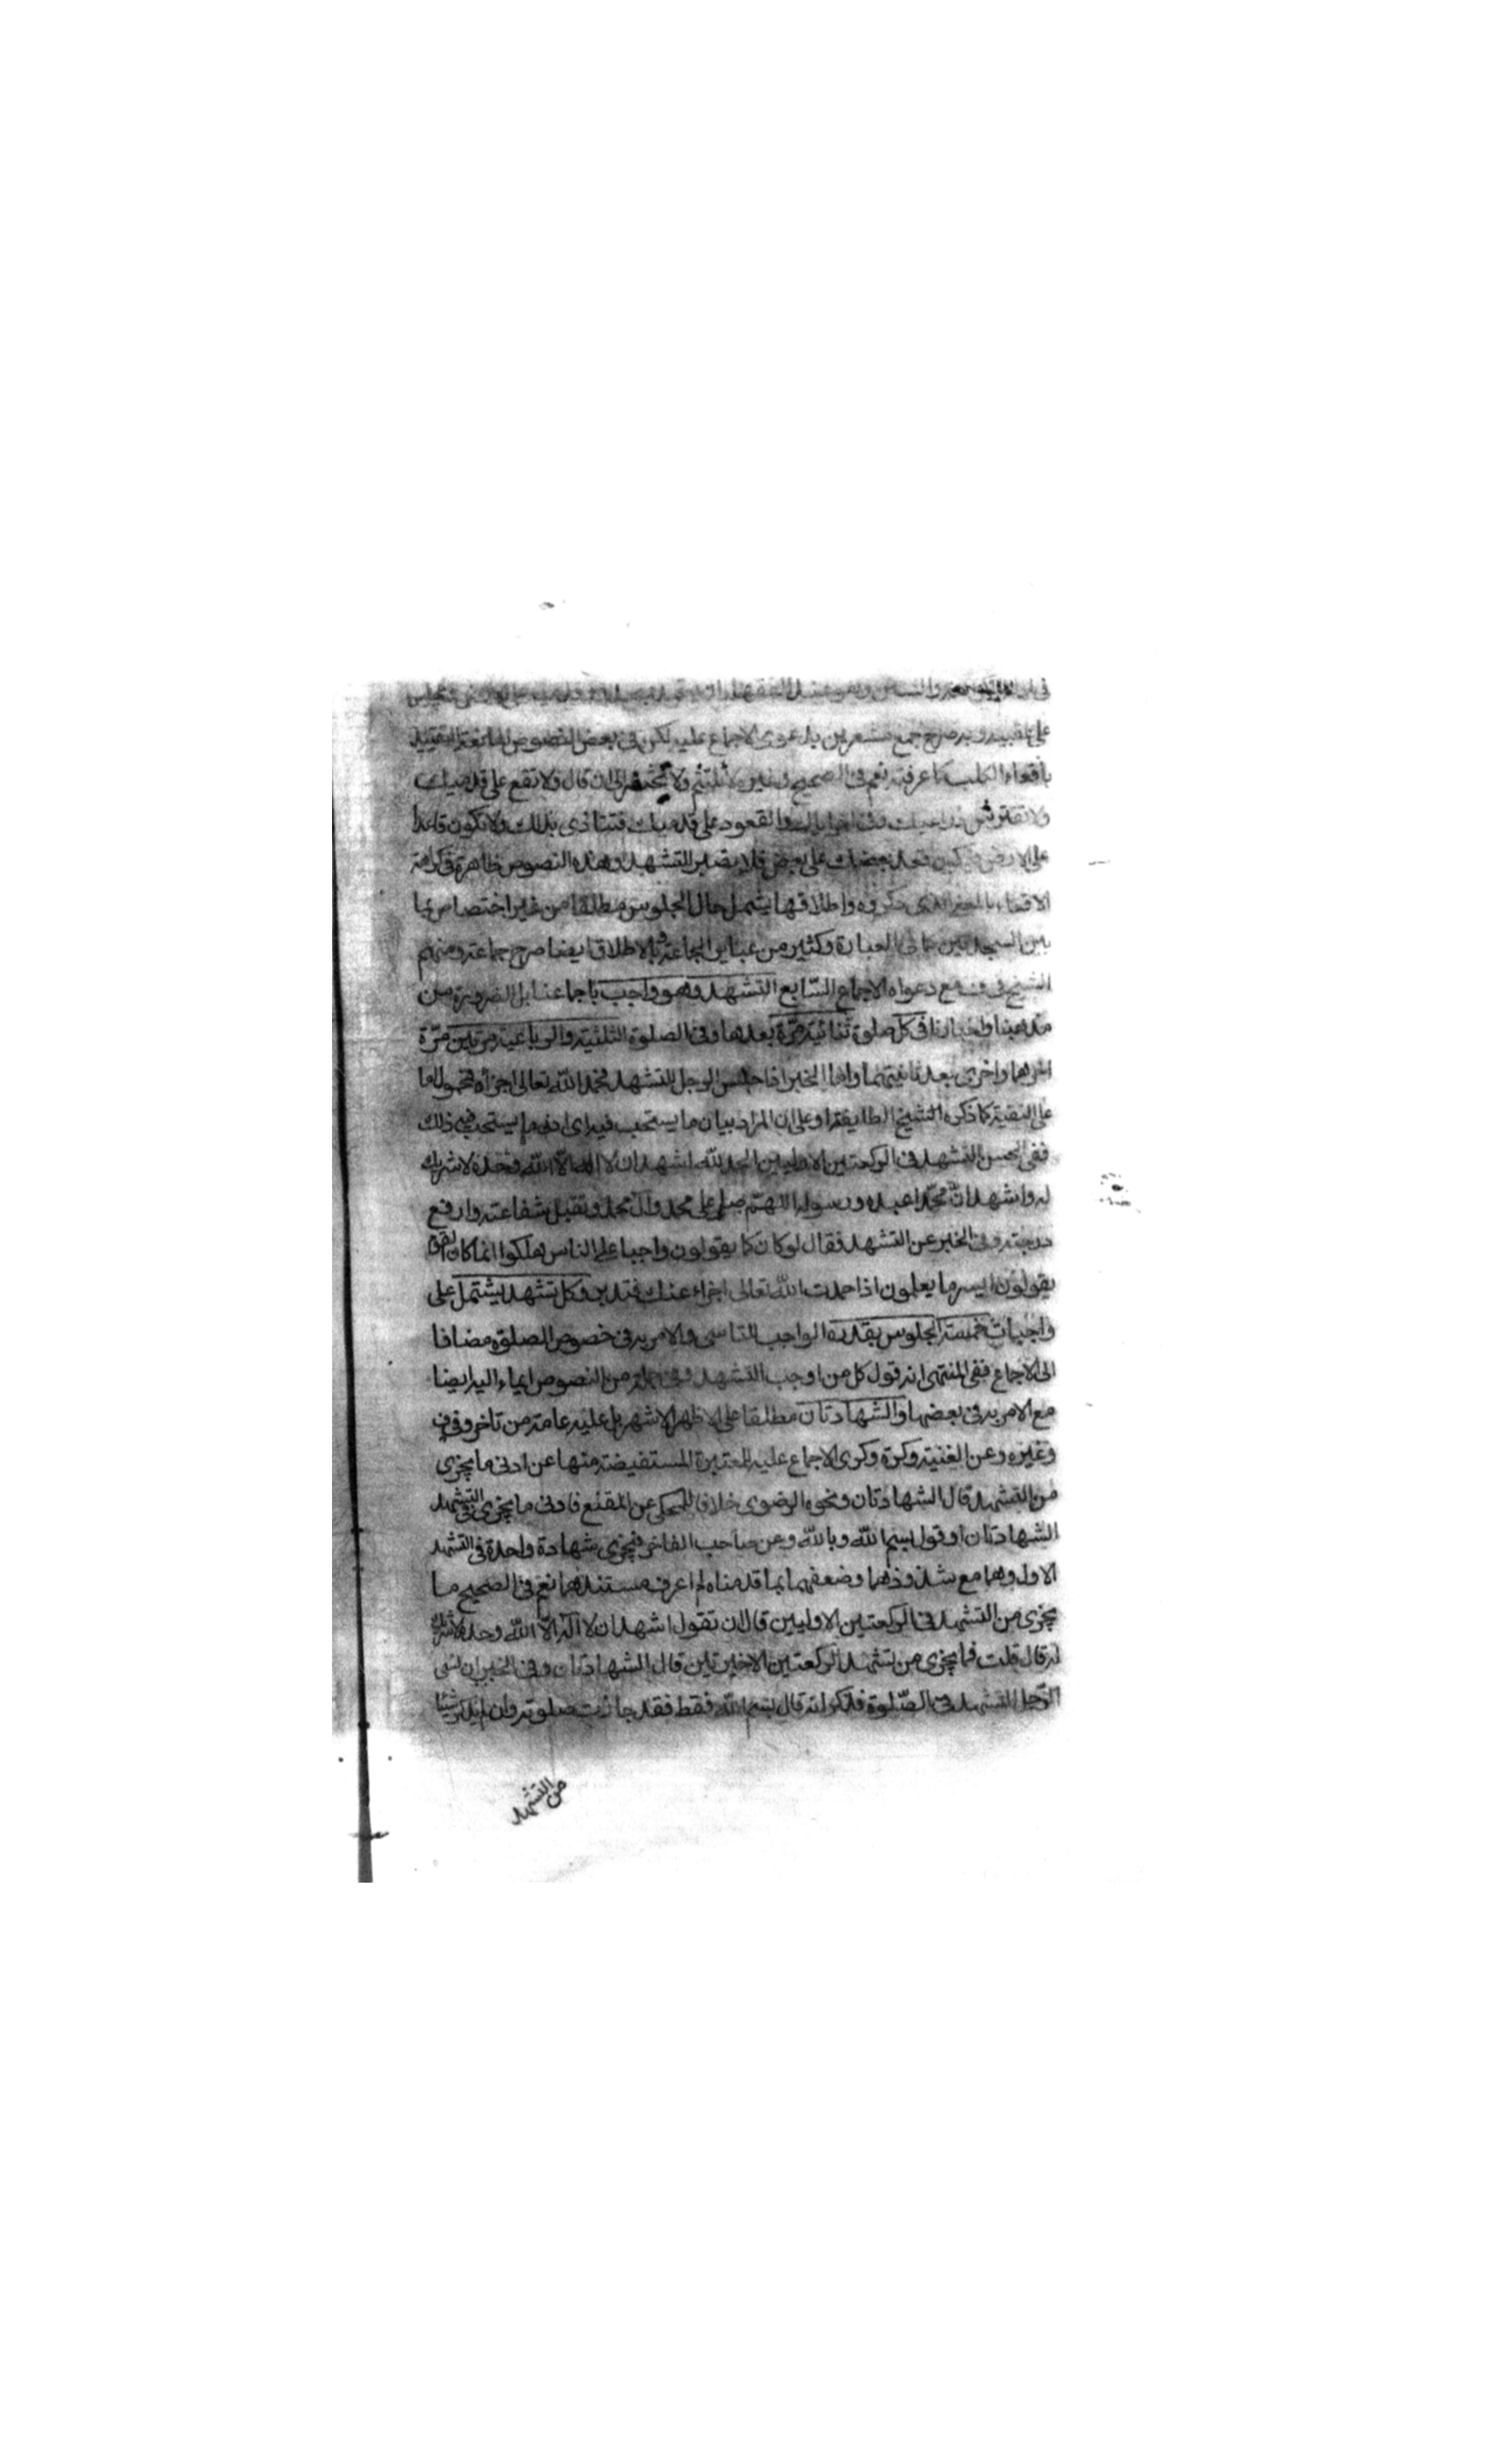 على تقييده به صرح جمع مشعرين بدعوى الاجماع عليه لكن في بعض النصوص المانعة التقييد
باقعاء الكلب كما عرفته نعم في الصحيح ولا تلثم ولا تحتفز الى ان قال ولا تقع على قدميك
ولا تفترش ذراعيك وفي اخر اياك والقعود على قدميك فتتاذى بذلك ولا تكون قاعدا
على الارض فيكون قعد بعضك على بعض فلا تصبر للتشهد وهذه النصوص ظاهرة في كراهة
الاقعاء بالمعنى الذي ذكروه واطلاقها يشمل حال الجلوس مطلقا من غير اختصاص بما
بين السجدتين كما في العبارة وكثير من عباير الجماعة وبالاطلاق ايضا صرح جماعة ومنهم
الشيخ في ف مع دعواه الاجماع السّابع التشهد وهو واجب باجماعنا بل الضرورة من
مذهبنا واخبارنا في كل صلوة ثنائية مرّة بعدها وفي الصلوة الثلثية والرباعية مرتين مرّة
اخرهما واخرى بعد ثانيتهما واما الخبر اذا جلس الرجل للتشهد فحمد الله تعالى اجزأه فمحمول اما
على التقية كما ذكره الشيخ الطايفة او على ان المراد بيان ما يستحب فيه اي ادنى ما يستحب فيه ذلك
ففي الحسن التشهد في الركعتين الاوليين الحمد لله اشهد ان لا اله الا الله وحده لا شريك
له واشهد انّ محمّدا عبده ورسوله اللهم صلى على محمد وآل محمد وتقبل شفاعته وارفع
درجته وفي الخبر عن التشهد فقال لو كان كما يقولون واجبا على الناس هلكوا انما كان القوم
يقولون ايسر ما يعلمون اذا حمدت الله تعالى اجزاء عنك فتدبر وكل تشهد يشتمل على
واجبات خمسة الجلوس بقدره الواجب للتاسى والامر به في خصوص الصلوة مضافا
الى الاجماع ففي المنتهى انه قول كل من اوجب التشهد وفي جملة من النصوص ايماء اليه ايضا
مع الامر به في بعضها والشهادتان مطلقا على الاظهر الاشهر بل عليه عامة من تاخر وفي ف
وغيره وعن الغنية وكرة وكرى الاجماع عليه للمعتبرة المستفيضة منها عن ادنى ما يجزى
من التشهد قال الشهادتان ونحوه الرضوى خلافا للمحكى عن المقنع فادنى ما يجزى في التشهد
الشهادتان او قول بسم الله وبالله وعن صاحب الفاخر فيجزى شهادة واحدة في التشهد
الاول وهما مع شذوذهما وضعفهما بما قدمناه لم اعرف مستندهما نعم في الصحيح ما
يجزى من التشهد في الركعتين الاوليين قال ان تقول اشهد ان لا اله الا الله وحده لا شريك
له قال قلت فما يجزى من تشهد الركعتين الاخيرتين قال الشهادتان وفي الخبر ان نسى
الرّجل التشهد في الصّلوة فذكر انه قال بسم الله فقط فقد جازت صلوته وان لم يذكر شيئا
من التشهد